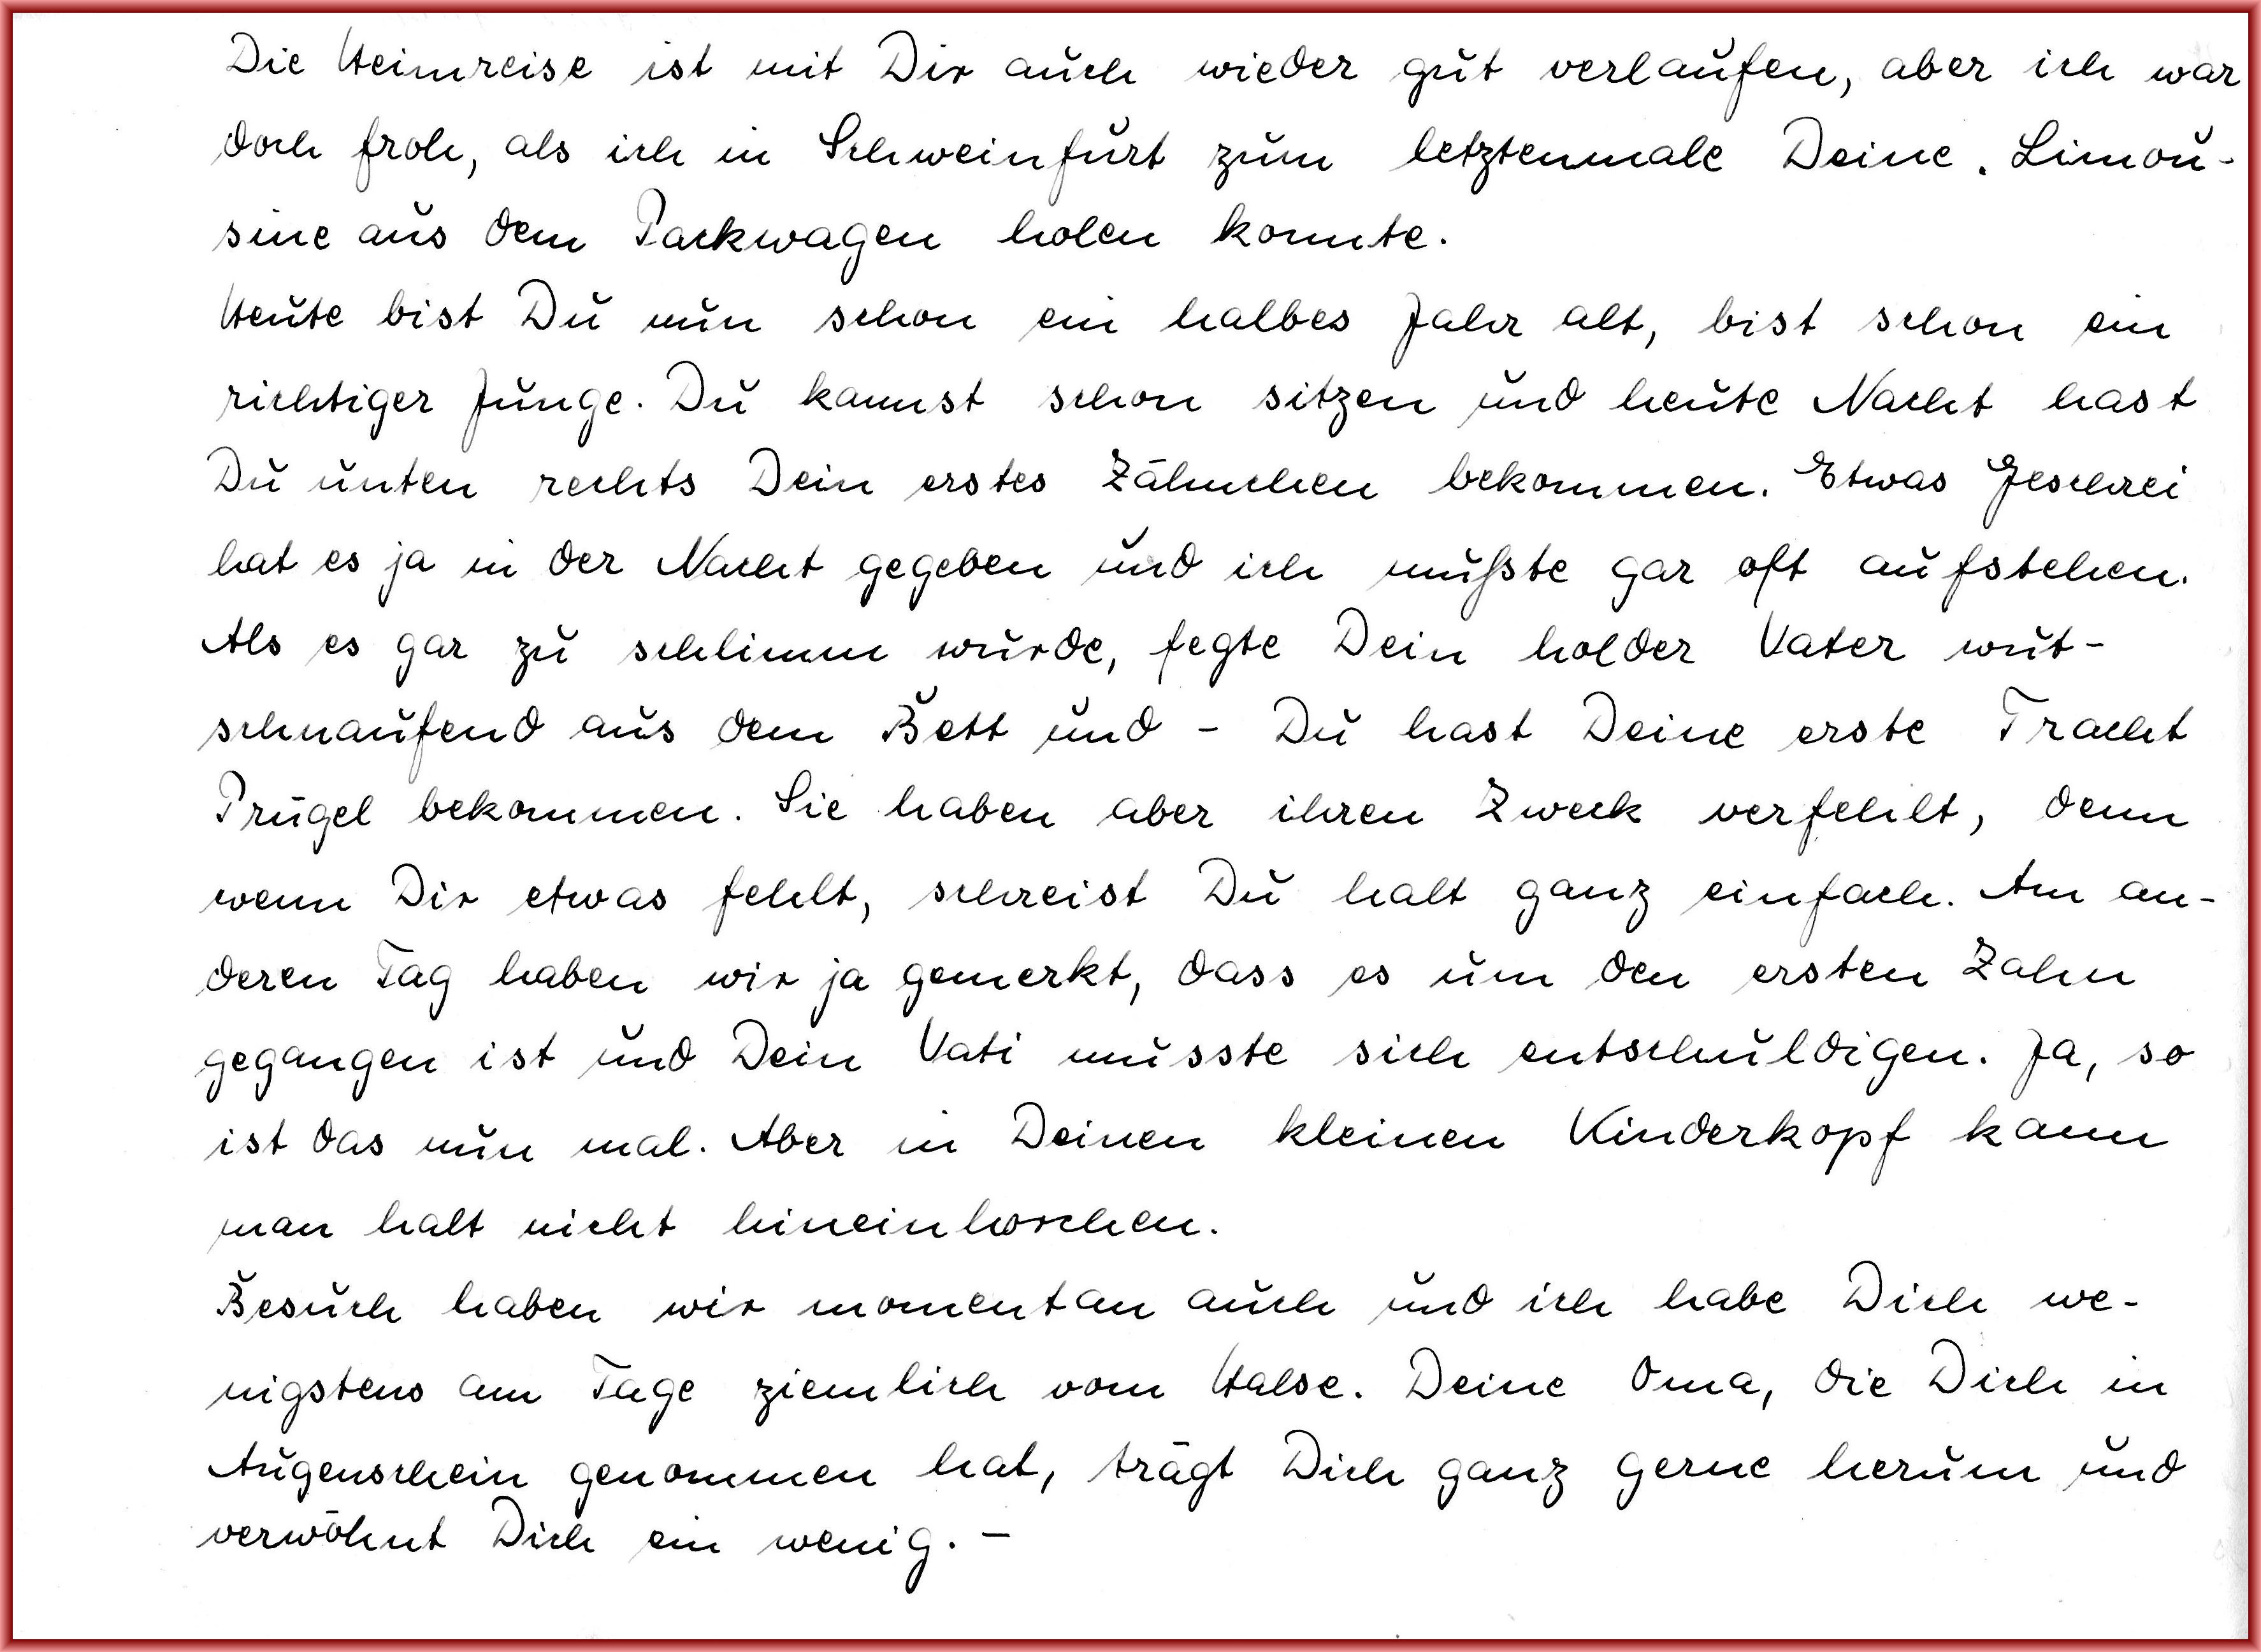 Die Heimreise ist mit Dir auch wieder gut verlaufen, aber ich war
doch froh, als ich in Schweinfurt zum letztenmale Deine. Limou-
sine aus dem Packwagen holen konnte.
Heute bist Du nun schon ein halbes Jahr alt, bist schon ein
richtiger Junge. Du kannst schon sitzen und heute Nacht hast
Du unten rechts Dein erstes Zähnchen bekommen. Etwas Geschrei
hat es ja in der Nacht gegeben und ich mußte gar oft aufstehen.
Als es gar zu schlimm wurde, fegte Dein holder Vater wut-
schnaufend aus dem Bett und - Du hast Deine erste Tracht
Prügel bekommen. Sie haben aber ihren Zweck verfehlt, denn
wenn Dir etwas fehlt, schreist Du halt ganz einfach. Am an-
deren Tag haben wir ja gemerkt, dass es um den ersten Zahn
gegangen ist und Dein Vati musste sich entschuldigen. Ja, so
ist das nun mal. Aber in Deinen kleinen Kinderkopf kann
man halt nicht hineinhorchen.
Besuch haben wir momentan auch und ich habe Dich we-
nigstens am Tage ziemlich vom Halse. Deine Oma, die Dich in
Augenschein genommen hat, trägt Dich ganz gerne herum und
verwöhnt Dich ein wenig. -